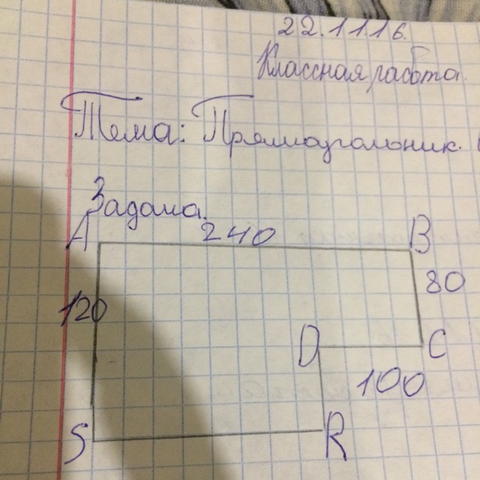 22.11.16.
Классная работа
Тема: Прямоугольник.
Задача.
A 240 B
120 80
D C
100
S R